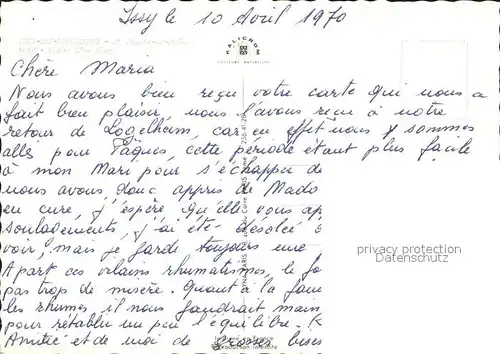 Issy le 10 Avril 1970
KALICROM
Chère Maria
Nous avons bien reçu votre carte qui nous a
fait bien plaisir, nous l'avons reçu à notre
retour de Logelheim, car en effet nous y sommes
allés pour Pâques, cette période étant plus facile
à mon Mari pour s'échapper de
nous avons donc appris de Mado
en cure, j'espère qu'elle vous ap
soulagements, j'ai été désolée
voir, mais je garde toujours une
privacy protection
Datenschutz
A part ces vilains rhumatismes, le
pas trop de misère. Quant à la
les rhumes il nous faudrait main
pour rétablir un peu l'équilibre.
Amitié et de moi de grosses bises